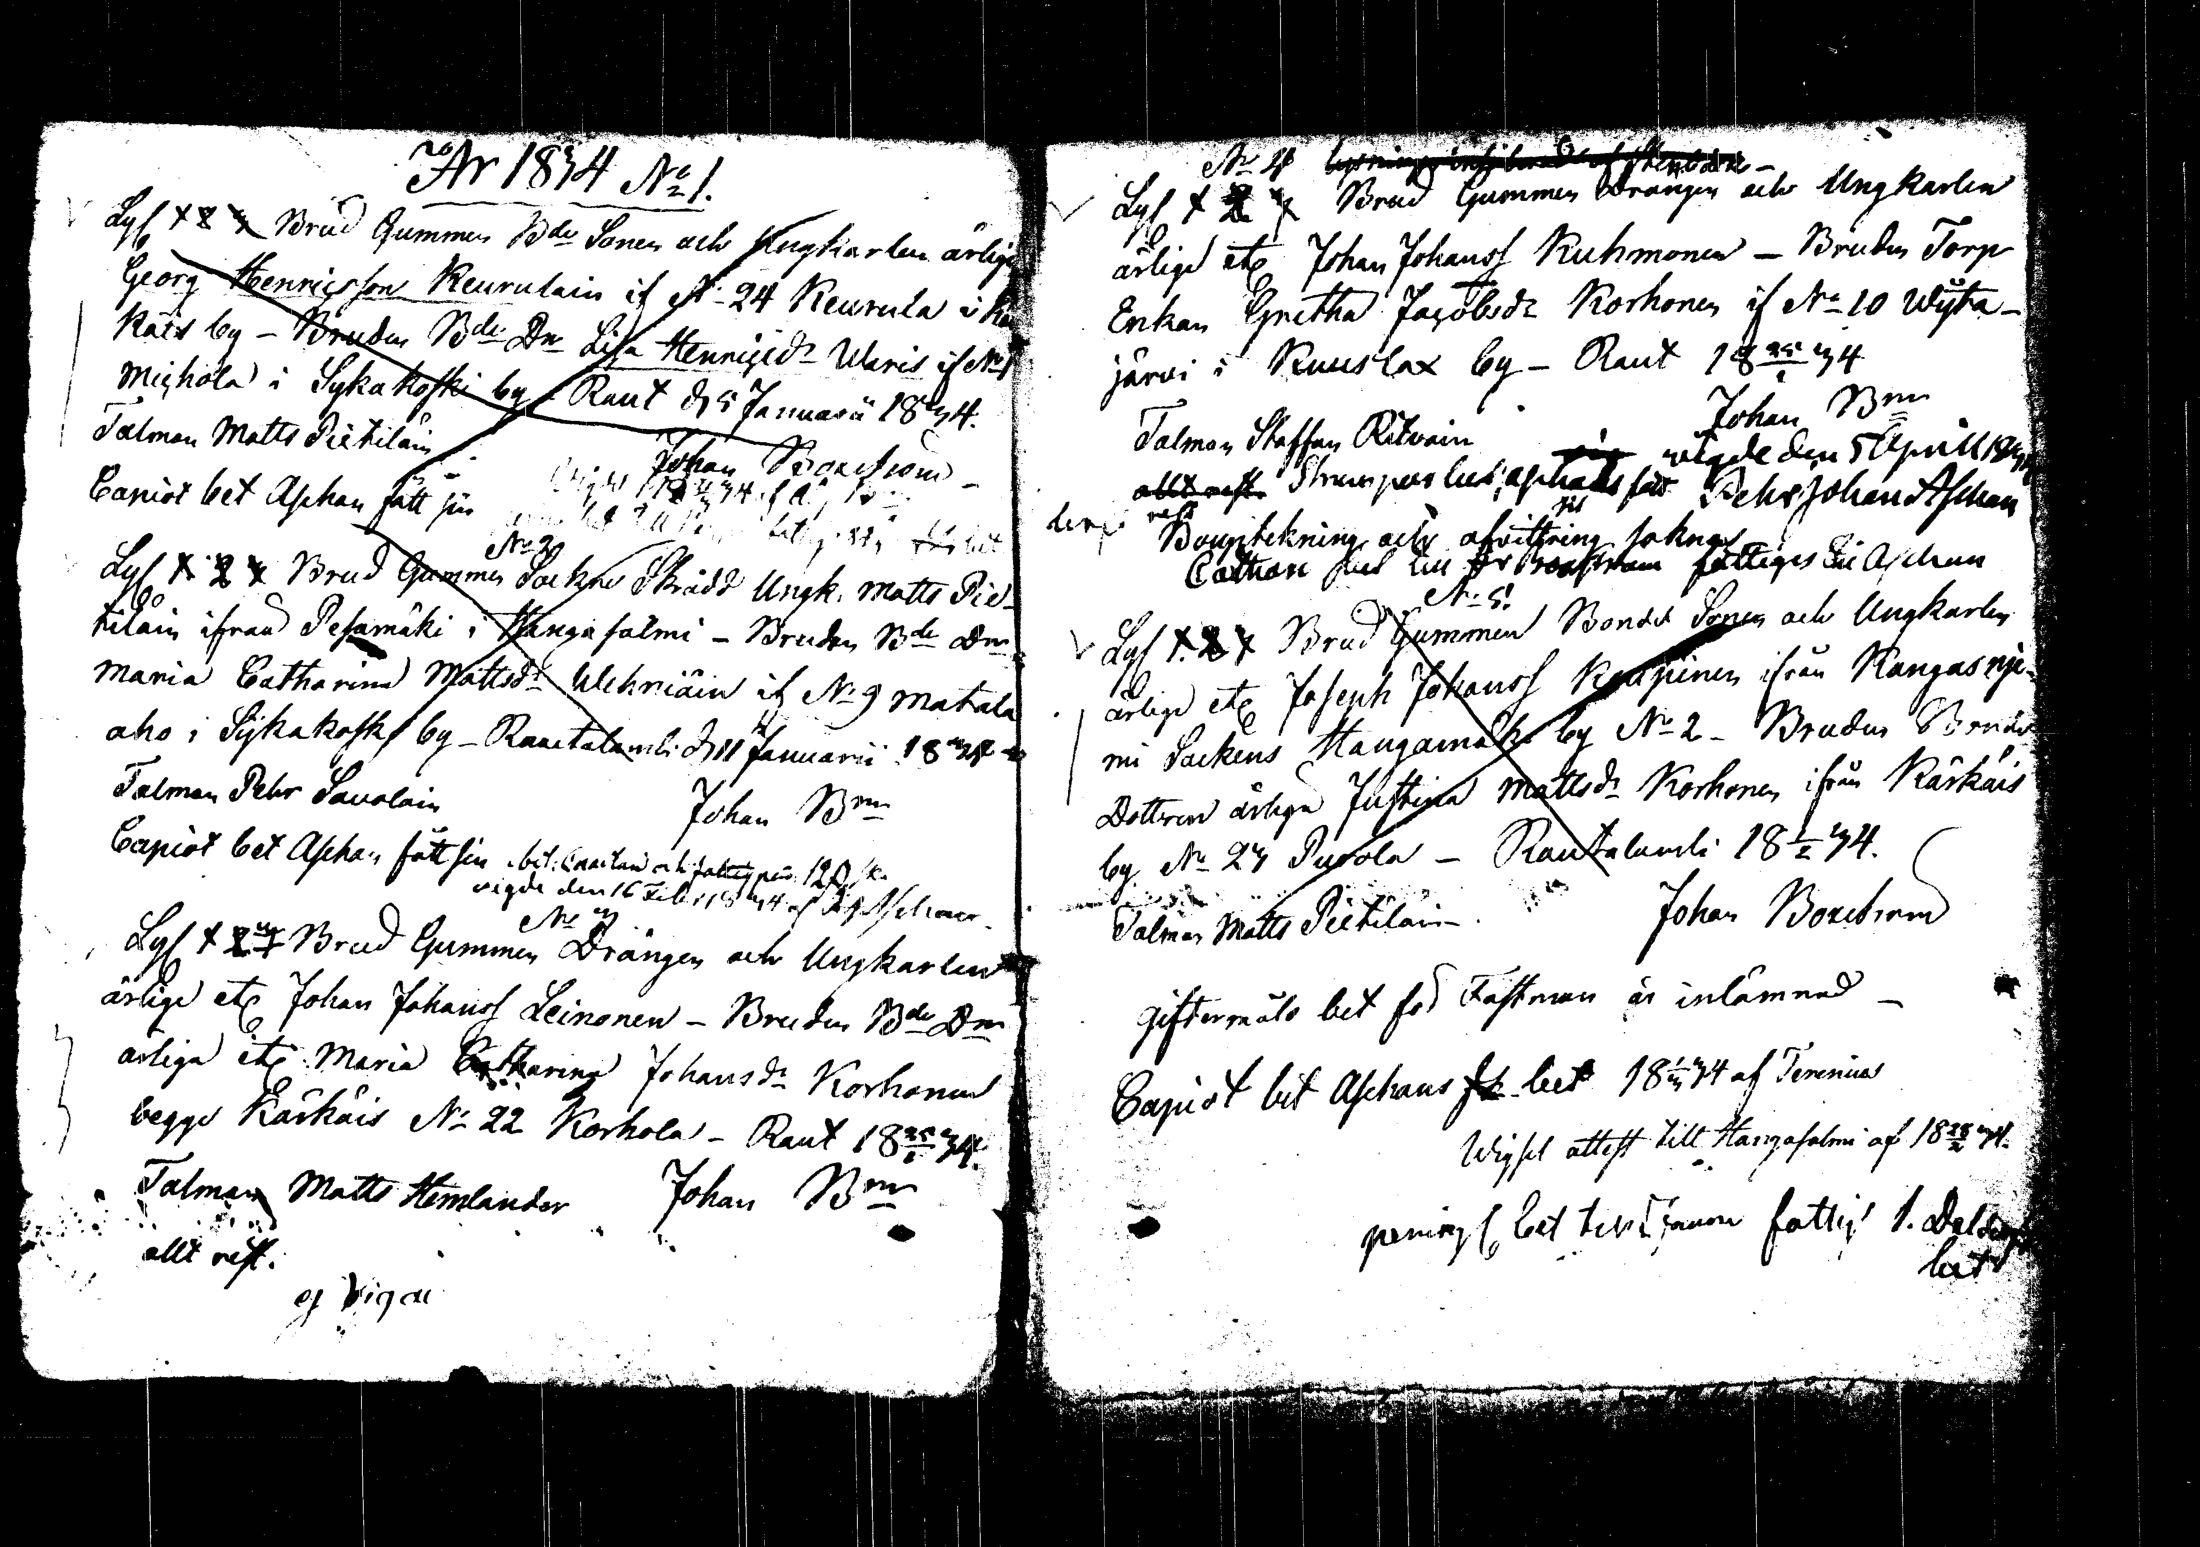 År 1834 No 1.
Lyst 1 2 3 Brud Gummen Bde Sonen och Ungkarlen ärlige
Georg Henricsson Keurulain if No 24 Keurula i
käis by - Bruden Bde Dr Lisa Henricsdr Waris if No
Michola i Sykäkoski by - Raut d 5 Januarii 1834.
Talman Matts Pietiläin
Johan Boxström
Capiöt bet Aschan fått sin
No 2
Lyst 1 2 3 Brud Gummen Sockne Skrädd Ungk. Matts Pie-
tiläin ifrån Pesamäki i Hangasalmi - Bruden Bde Dr
Maria Catharina Mattsdr Wehniäin if No 9 Matala
aho i Sykäkoski by - Rautalambi d 11 Januarii 1834
Talman Pehr Savolain
Johan Bm
Capiöt bet Aschan fått sin
vigde den 16 Febr 1834 af Aschan
No 3
Lyst 1 2 3 Brud Gummen Drängen och Ungkarlen
ärlige etc Johan Johanss Leinonen - Bruden Bde Dr
ärliga etc Maria Catharina Johansdr Korhonen
begge Kärkäis No 22 Korhola - Raut 18 25/1 34.
Talman Matts Hemlander Johan Bm
allt rest.
ej vigde
No 4
Lyst 1 2 3 Brud Gummen Drängen och Ungkarlen
ärlige etc Johan Johanss Kuhmonen - Bruden Torp
Enkan Gretha Jacobsdr Korhonen if No 10 Wijta-
järvi i Kuuslax by - Raut 18 25/1 34
Johan Bm
Talman Staffan Ritvain
vigde den 5 April 1834
allt rest. Pehr Johan Aschan
rest
Bouptekning och afvittring saknas
No 5.
Lyst 1. 2 3 Brud Gummen Bonde Sonen och Ungkarlen
ärlige etc Joseph Johanss Kauppinen ifrån Kangasnje-
mi Sockens Haugamäki by No 2 - Bruden Bonde
Dottren ärliga Justina Mattsdr Korhonen ifrån Kärkäis
by No 23 Purola - Rautalambi 18 1/2 34.
Talman Matts Pietiläin Johan Boxström
Giftermåls bet för Fästman är inlämnad -
Capiöt bet Aschans bet 18 34 af Terenius
Wigsel attest till Hangasalmi af 18 28/2 34.
bet fattig 1. Daler
bet